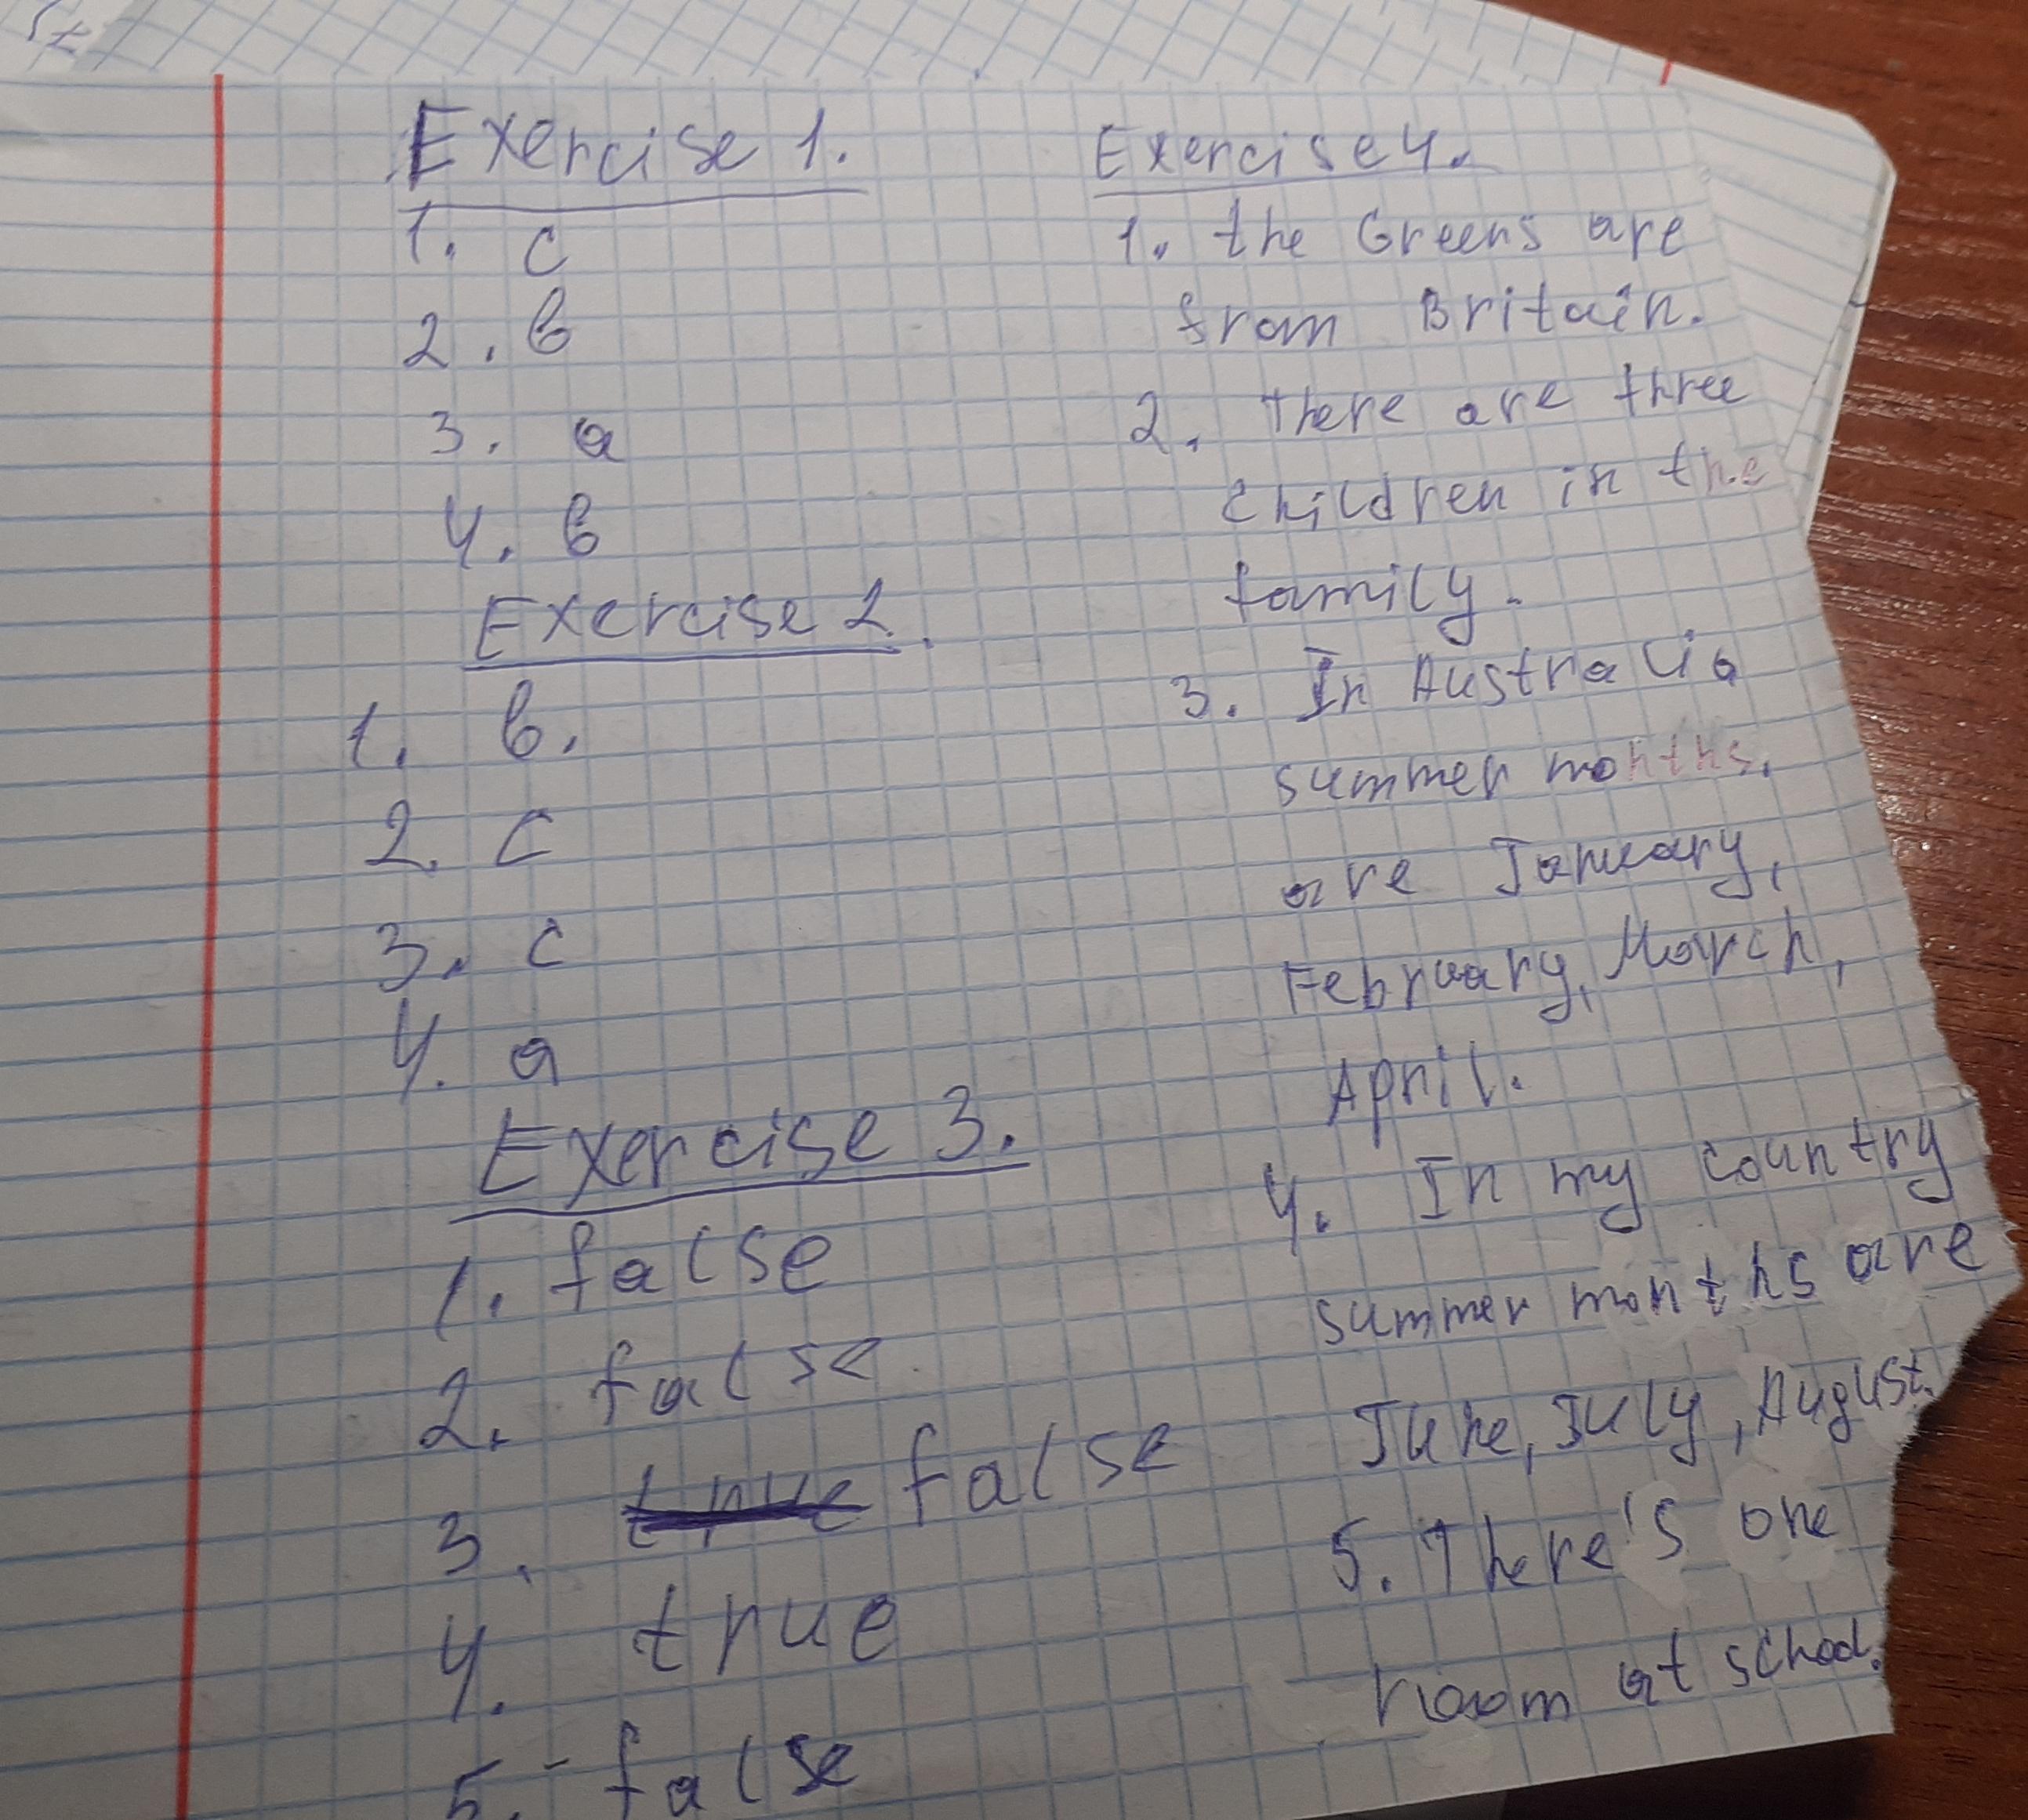 Exercise 1.
1. c
2. b
3. a
4. b
Exercise 2.
1. b.
2. c
3. c
4. a
Exercise 3.
1. false
2. false
3. true false
4. true
5. false
Exercise 4.
1. the Greens are
from Britain.
2. There are three
children in the
family.
3. In Australia
summer months.
are January,
February, March,
April.
4. In my country
summer months are
June, July, August.
5. There's one
room at school.